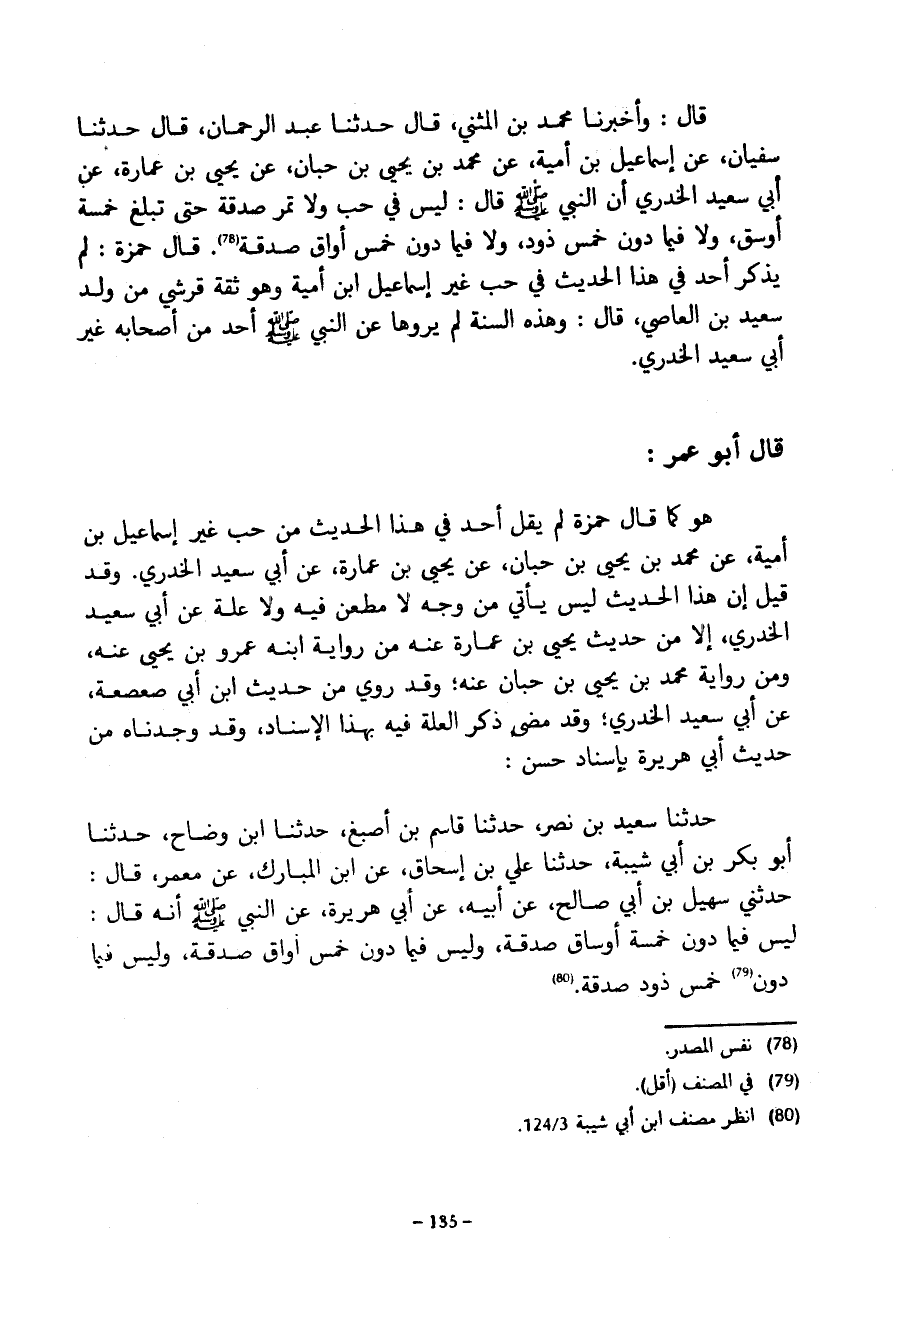 قال : وأخبرنا محمد بن المثني، قال حدثنا عبد الرحمان، قال حدثنا
سفيان، عن إسماعيل بن أمية، عن محمد بن يحيى بن حبان، عن يحيى بن عمارة، عن
أبي سعيد الخدري أن النبي ﷺ قال : ليس في حب ولا تمر صدقة حتى تبلغ خمسة
أوسق، ولا فيما دون خمس ذود، ولا فيما دون خمس أواق صدقة(78). قال حمزة : لم
يذكر أحد في هذا الحديث في حب غير إسماعيل ابن أمية وهو ثقة قرشي من ولد
سعيد بن العاصي، قال : وهذه السنة لم يروها عن النبي ﷺ أحد من أصحابه غير
أبي سعيد الخدري.
قال أبو عمر :
هو كما قال حمزة لم يقل أحد في هذا الحديث من حب غير إسماعيل بن
أمية، عن محمد بن يحيى بن حبان، عن يحيى بن عمارة، عن أبي سعيد الخدري. وقد
قيل إن هذا الحديث ليس يأتي من وجه لا مطعن فيه ولا علة عن أبي سعيد
الخدري، إلا من حديث يحيى بن عمارة عنه من رواية ابنه عمرو بن يحيى عنه،
ومن رواية محمد بن يحيى بن حبان عنه؛ وقد روي من حديث ابن أبي صعصعة،
عن أبي سعيد الخدري؛ وقد مضى ذكر العلة فيه بهذا الإسناد، وقد وجدناه من
حديث أبي هريرة بإسناد حسن :
حدثنا سعيد بن نصر، حدثنا قاسم بن أصبغ، حدثنا ابن وضاح، حدثنا
أبو بكر بن أبي شيبة، حدثنا علي بن إسحاق، عن ابن المبارك، عن معمر، قال :
حدثني سهيل بن أبي صالح، عن أبيه، عن أبي هريرة، عن النبي ﷺ أنه قال :
ليس فيما دون خمسة أوساق صدقة، وليس فيما دون خمس أواق صدقة، وليس فيما
دون(79) خمس ذود صدقة.(80)
(78) نفس المصدر.
(79) في المصنف (أقل).
(80) انظر مصنف ابن أبي شيبة 124/3.
- 135 -